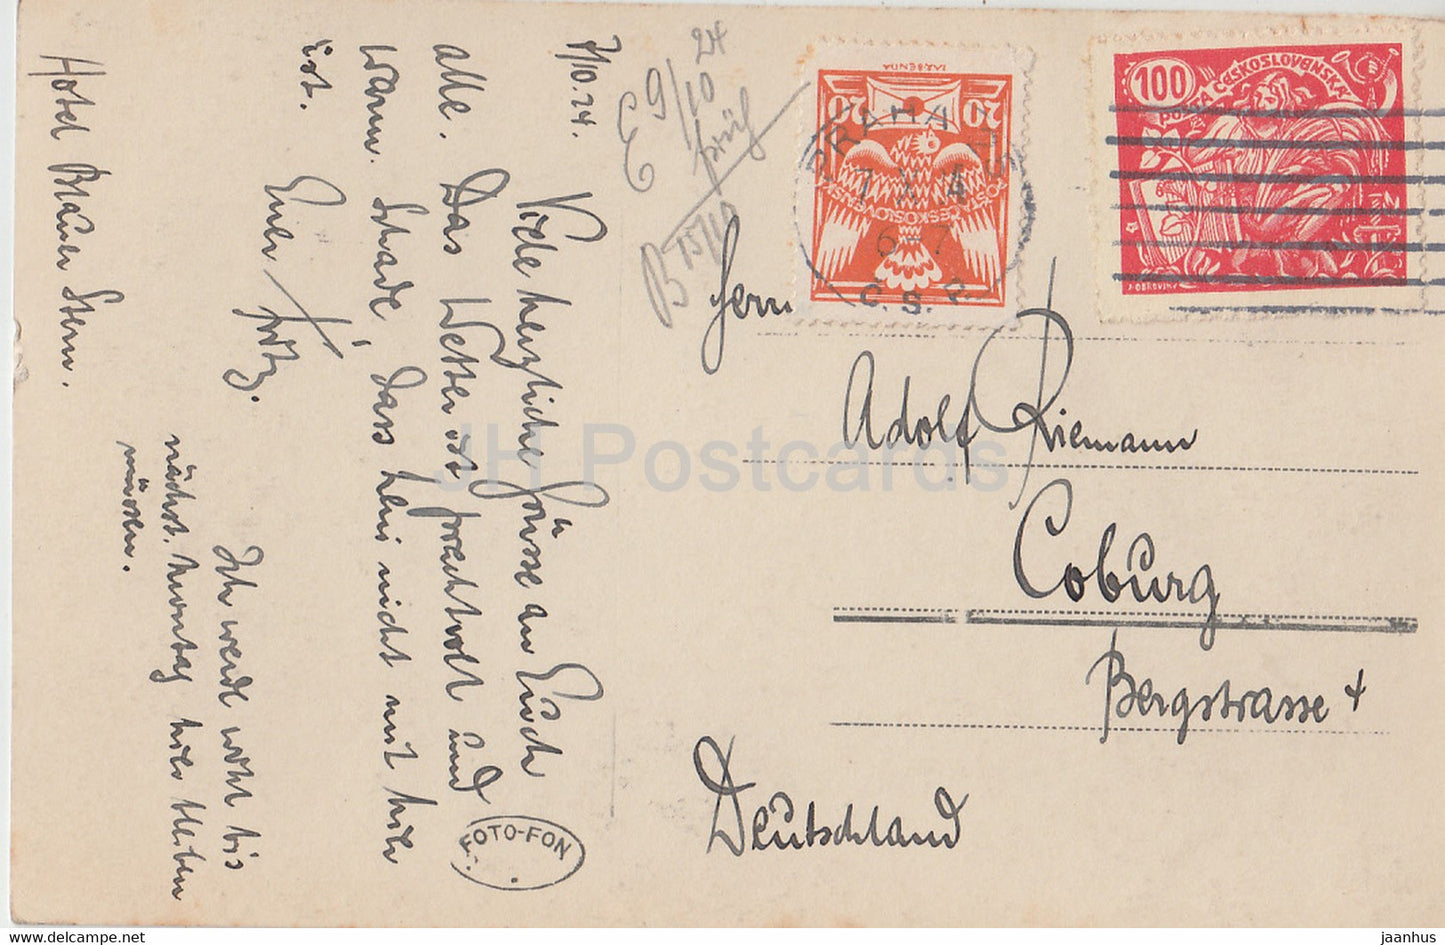 7/10.24.
Viele herzliche Grüsse an Euch
alle. Das Wetter ist prachtvoll und
warm. Schade, dass Leni nicht mit hier
ist.
Euer Fritz.
Ich werde wohl bis
nächst. Montag hier bleiben
müssen.
Hotel Blauer Stern.
9/10 24
früh
B 15/10
Herrn
Adolf Riemann
Coburg
Bergstrasse 4
Deutschland
FOTO-FON
20 20
POŠTA ČESKOSLOVENSKÁ
PRAHA
7 X 4
6-7
Č.S.P.
100
POŠTA ČESKOSLOVENSKÁ
JH Postcards
www.delcampe.net
jaanhus